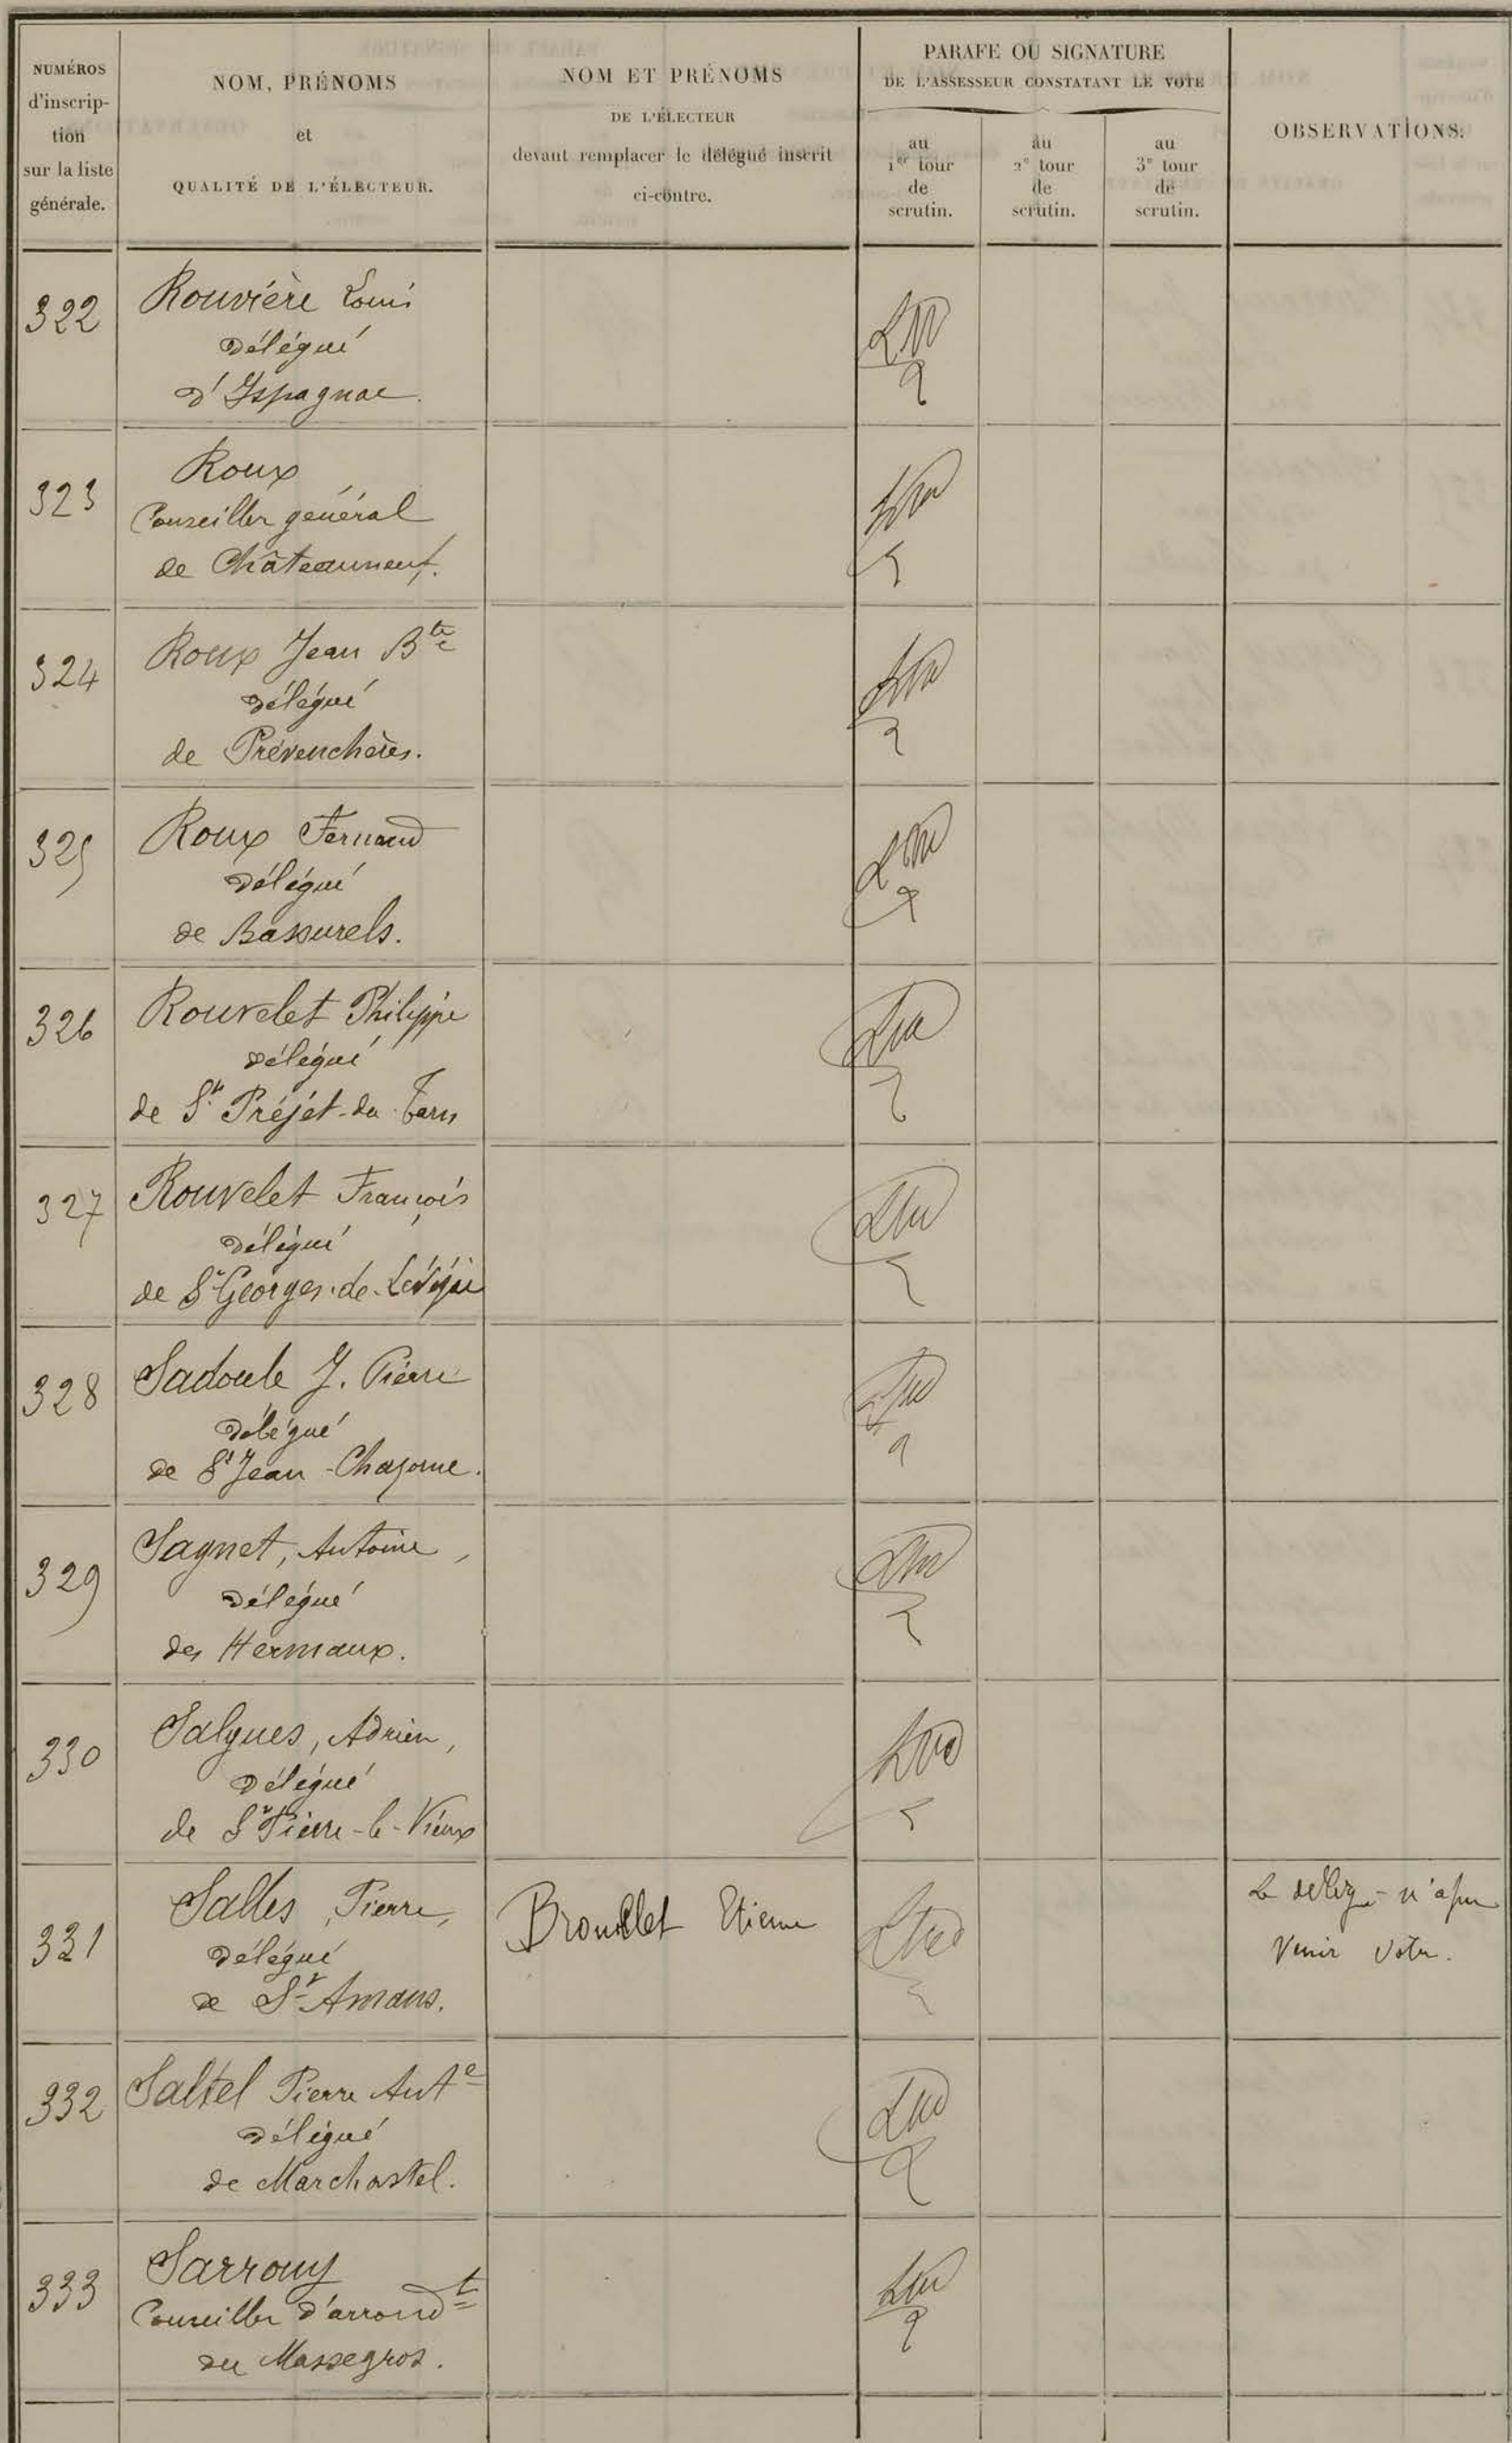 NUMÉROS
d'inscrip-
tion
sur la liste
générale.
NOM, PRÉNOMS
et
QUALITÉ DE L'ÉLECTEUR.
NOM ET PRÉNOMS
DE L'ÉLECTEUR
devant remplacer le délégué inscrit
ci-contre.
PARAFE OU SIGNATURE
DE L'ASSESSEUR CONSTATANT LE VOTE
au
1er tour
de
scrutin.
au
2e tour
de
scrutin.
au
3e tour
de
scrutin.
OBSERVATIONS.
322
Rouvière Louis
délégué
d'Ispagnac.
323
Roux
Conseiller général
de Châteauneuf.
324
Roux Jean Bte
délégué
de Prévenchères.
325
Roux Fernand
délégué
de Bassurels.
326
Rouvelet Philippe
délégué
de St Préjet-du Tarn
327
Rouvelet François
délégué
de St Georges-de-Levéjac
328
Sadoule J. Pierre
délégué
de St Jean-Chazorne.
329
Sagnet, Antoine,
délégué
des Hermaux.
330
Salgues, Adrien,
délégué
de St Pierre-le-Vieux
331
Salles, Pierre,
délégué
de St Amans.
Brouillet Etienne
Le délégué n'a pu
venir voter.
332
Saltel Pierre Ante
délégué
de Marchastel.
333
Sarrouy
Conseiller d'arrondt
du Massegros.